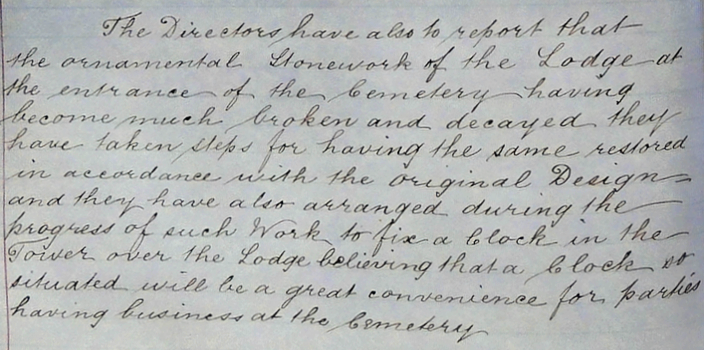 The Directors have also to report that
the ornamental Stonework of the Lodge at
the entrance of the Cemetery having
become much broken and decayed they
have taken steps for having the same restored
in accordance with the original Design
and they have also arranged during the
progress of such Work to fix a Clock in the
Tower over the Lodge believing that a Clock so
situated will be a great convenience for parties
having business at the Cemetery